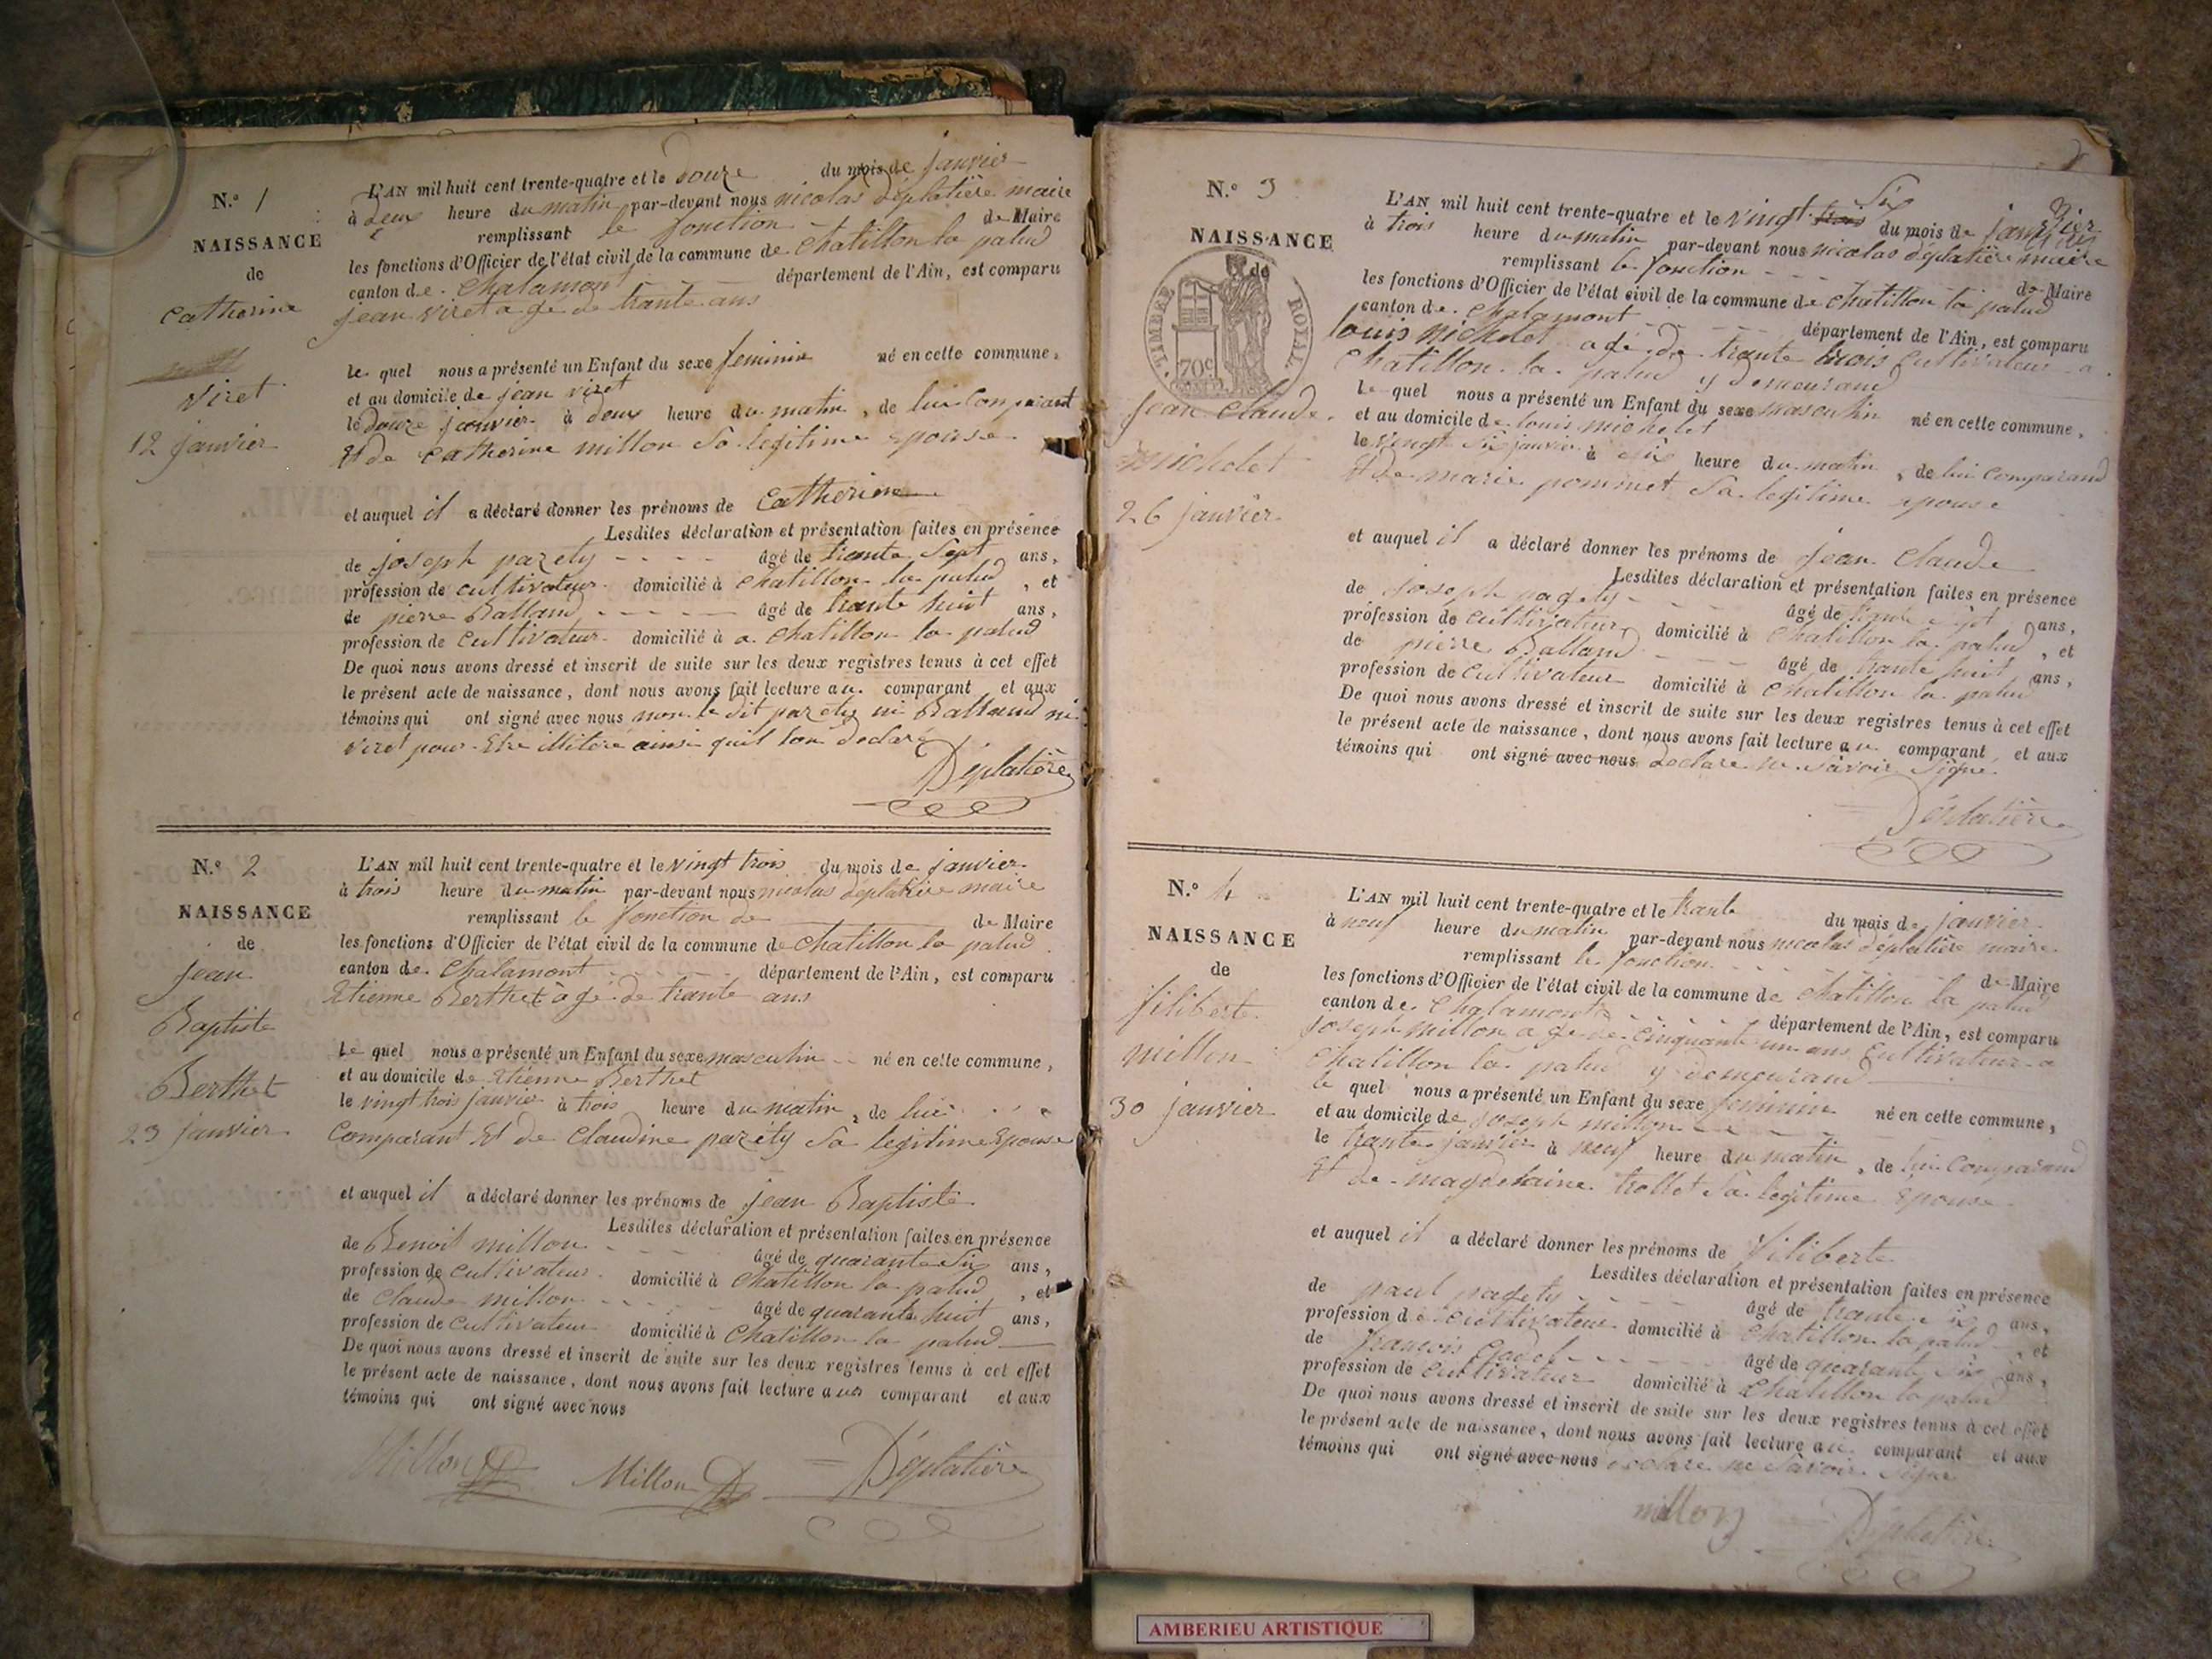 N.o 1
NAISSANCE
de
Catherine
Viret
12 janvier
L'AN mil huit cent trente-quatre et le douze du mois de janvier
à deux heure du matin par-devant nous nicolas déplatière maire
remplissant le fonction de Maire
les fonctions d'Officier de l'état civil de la commune de Chatillon la palud
canton de Chalamont département de l'Ain, est comparu
jean viret age de trante ans
le quel nous a présenté un Enfant du sexe feminin né en cette commune,
et au domicile de jean viret
le douze janvier à deux heure du matin, de lui Comparant
Et de Catherine millon Sa legitime Epouse
et auquel il a déclaré donner les prénoms de Catherine
Lesdites déclaration et présentation faites en présence
de joseph parety âgé de trante Sept ans,
profession de cultivateur domicilié à Chatillon la palud, et
de pierre Balland âgé de trante huit ans,
profession de Cultivateur domicilié à a Chatillon la palud
De quoi nous avons dressé et inscrit de suite sur les deux registres tenus à cet effet
le présent acte de naissance, dont nous avons fait lecture au comparant et aux
témoins qui ont signé avec nous non le dit parety ni Balland ni
Viret pour Etre illiteré ainsi quil lon declaré
Déplatière
N.o 2
NAISSANCE
de
jean
Baptiste
Berthet
23 janvier
L'AN mil huit cent trente-quatre et le vingt trois du mois de janvier
à trois heure du matin par-devant nous nicolas déplatière maire
remplissant le fonction de de Maire
les fonctions d'Officier de l'état civil de la commune de Chatillon la palud
canton de Chalamont département de l'Ain, est comparu
Etienne Berthet agé de trante ans
le quel nous a présenté un Enfant du sexe masculin né en cette commune,
et au domicile de Etienne Berthet
le vingt trois janvier à trois heure du matin, de lui
Comparant Et de Claudine paréty Sa legitime Epouse
et auquel il a déclaré donner les prénoms de jean Baptiste
Lesdites déclaration et présentation faites en présence
de Benoit millon âgé de quarante Six ans,
profession de Cultivateur domicilié à Chatillon la palud, et
de Claude millon âgé de quarante huit ans,
profession de Cultivateur domicilié à Chatillon la palud
De quoi nous avons dressé et inscrit de suite sur les deux registres tenus à cet effet
le présent acte de naissance, dont nous avons fait lecture aux comparant et aux
témoins qui ont signé avec nous
Millon Millon Déplatière
N.o 3
NAISSANCE
de
TIMBRE ROYAL
70c
jean Claude
michelet
26 janvier
L'AN mil huit cent trente-quatre et le vingt trois Six du mois de janvier
à trois heure du matin par-devant nous nicolas déplatière maire
remplissant le fonction de Maire
les fonctions d'Officier de l'état civil de la commune de Chatillon la palud
canton de Chalamont département de l'Ain, est comparu
louis michelet agé de trante trois Cultivateur a
Chatillon la palud y demeurand
le quel nous a présenté un Enfant du sexe masculin né en cette commune,
et au domicile de louis michelet
le vingt Six janvier à heure du matin, de lui Comparand
Et de marie pommet Sa legitime epouse
et auquel il a déclaré donner les prénoms de jean Claude
Lesdites déclaration et présentation faites en présence
de joseph pagety âgé de trante sept ans,
profession de cultivateur domicilié à Chatillon la palud, et
de pierre Balland âgé de trante huit ans,
profession de Cultivateur domicilié à Chatillon la palud
De quoi nous avons dressé et inscrit de suite sur les deux registres tenus à cet effet
le présent acte de naissance, dont nous avons fait lecture au comparant, et aux
témoins qui ont signé avec nous declare ne savoir Signe
Déplatière
N.o 4
NAISSANCE
de
filiberte
millon
30 janvier
L'AN mil huit cent trente-quatre et le trante du mois de janvier
à neuf heure du matin par-devant nous nicolas déplatière maire
remplissant le fonction de Maire
les fonctions d'Officier de l'état civil de la commune de Chatillon la palud
canton de Chalamont département de l'Ain, est comparu
joseph millon age de cinquante un ans Cultivateur a
Chatillon la palud y demeurand
le quel nous a présenté un Enfant du sexe feminin né en cette commune,
et au domicile de joseph millon
le trante janvier à neuf heure du matin, de lui Comparand
Et de magdelaine trollet Sa legitime Epouse
et auquel il a déclaré donner les prénoms de filiberte
Lesdites déclaration et présentation faites en présence
de paul pagety âgé de trante ans,
profession de Cultivateur domicilié à Chatillon la palud, et
de francois âgé de quarante ans,
profession de Cultivateur domicilié à Chatillon la palud
De quoi nous avons dressé et inscrit de suite sur les deux registres tenus à cet effet
le présent acte de naissance, dont nous avons fait lecture au comparant et aux
témoins qui ont signé avec nous declare ne Savoir Signe
millon Déplatière
AMBERIEU ARTISTIQUE